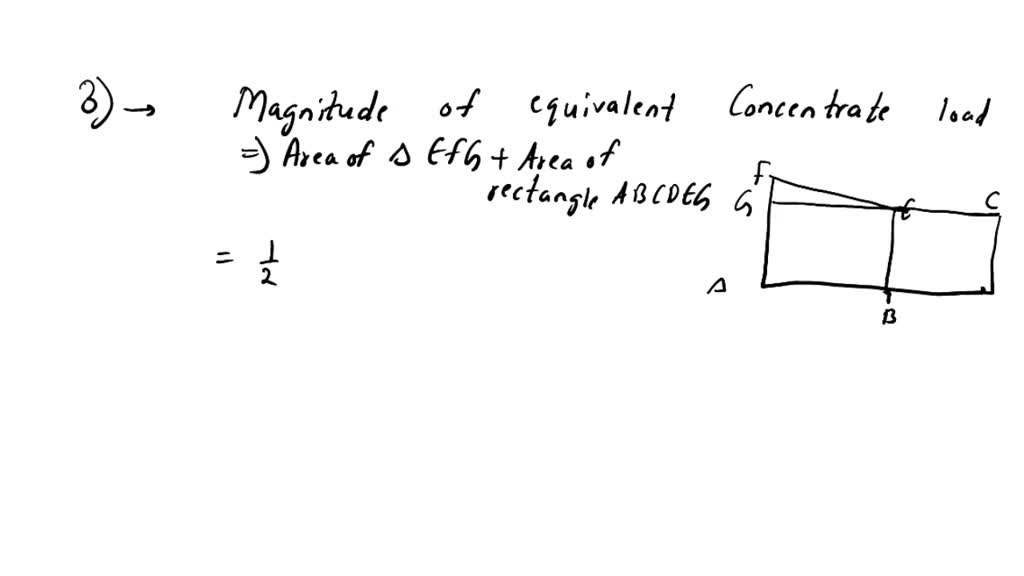 3) → Magnitude of equivalent Concentrate load
⇒ Area of Δ EFG + Area of
rectangle ABCDEG
= 1/2
F
G
E
C
A
B